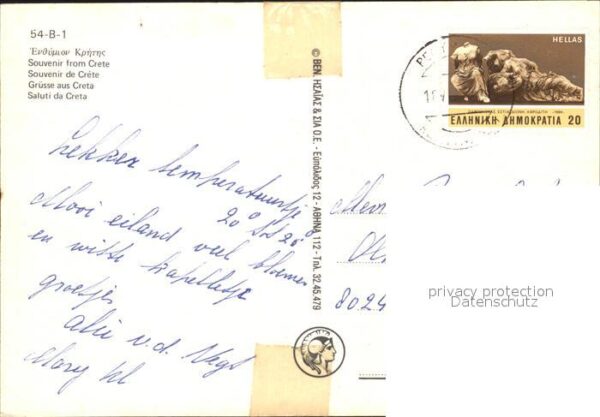 54-B-1
Ἐνθύμιον Κρήτης
Souvenir from Crete
Souvenir de Crète
Grüsse aus Creta
Saluti da Creta
Lekker temperatuurtje
20°
Mooi eiland veel bloemen
en witte kapelletje
groetjes
v.d. Vegt
Mary
© ΒΕΝ. ΗΣΑΪΑΣ & ΣΙΑ Ο.Ε. - Εὐπόλιδος 12 - ΑΘΗΝΑ 112 - Τηλ. 32.45.479
HELLAS
ΕΛΛΗΝΙΚΗ ΔΗΜΟΚΡΑΤΙΑ 20
8024
privacy protection
Datenschutz